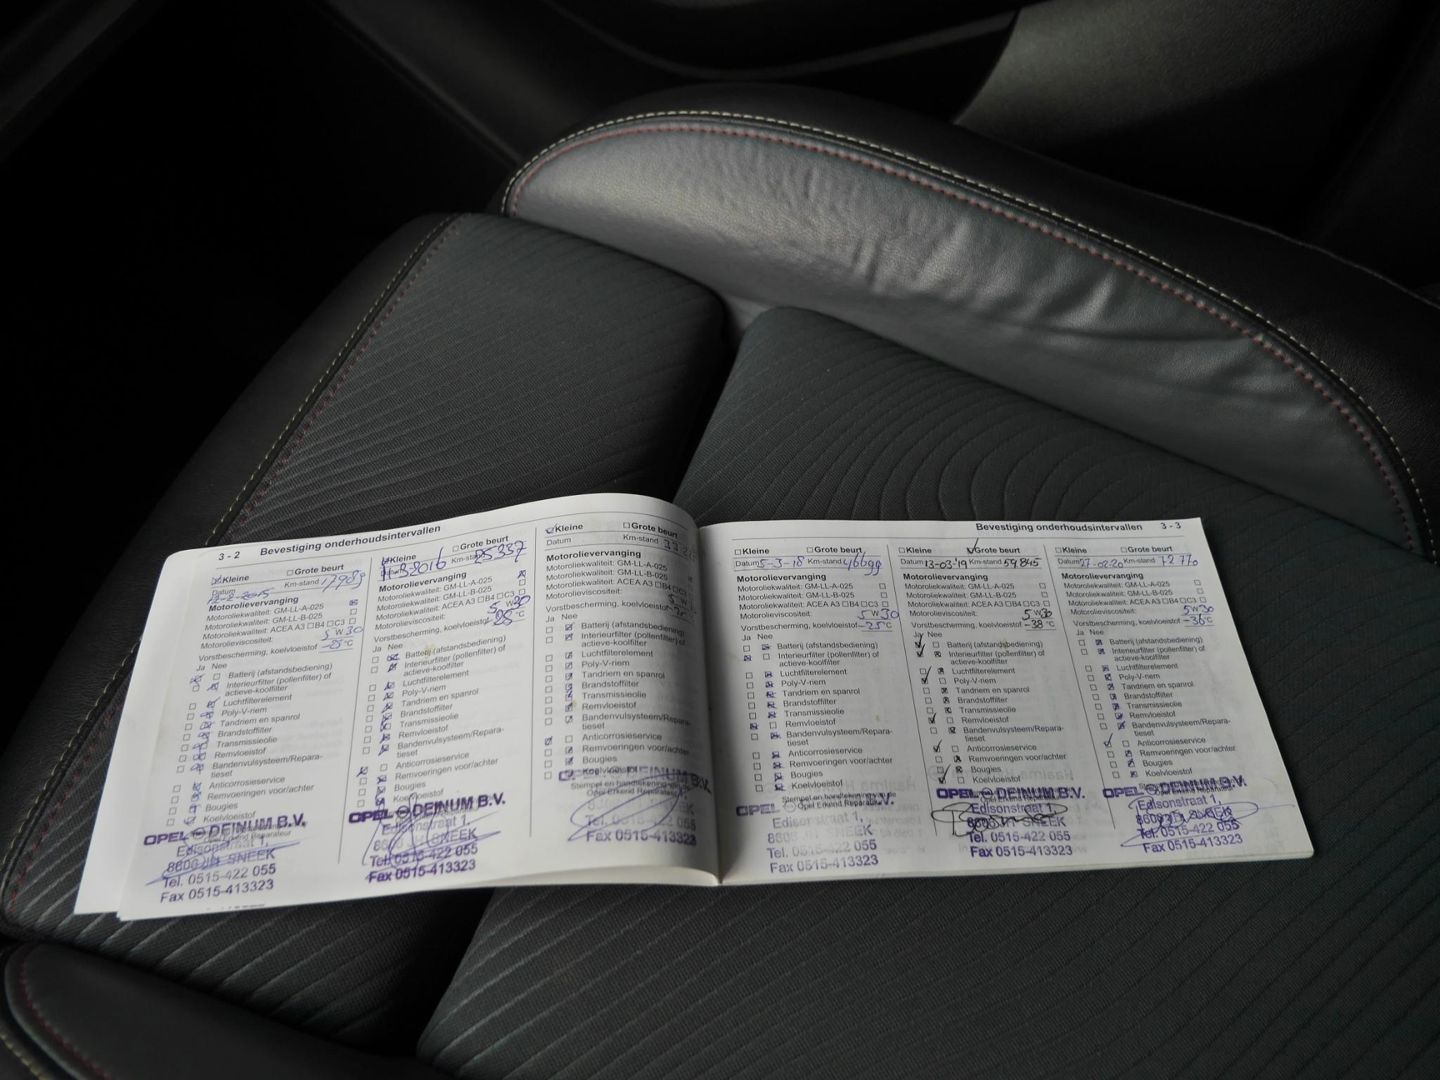 3 - 2 Bevestiging onderhoudsintervallen
Kleine Grote beurt
Datum 12-2-2015 Km-stand 17989
Motorolievervanging
Motoroliekwaliteit: GM-LL-A-025
Motoroliekwaliteit: GM-LL-B-025
Motoroliekwaliteit: ACEA A3 B4 C3
Motorolieviscositeit: 5 W 30
Vorstbescherming, koelvloeistof -25 °C
Ja Nee
Batterij (afstandsbediening)
Interieurfilter (pollenfilter) of
actieve-koolfilter
Luchtfilterelement
Poly-V-riem
Tandriem en spanrol
Brandstoffilter
Transmissieolie
Remvloeistof
Bandenvulsysteem/Repara-
tieset
Anticorrosieservice
Remvoeringen voor/achter
Bougies
Koelvloeistof
OPEL DEINUM B.V.
Edisonstraat 1,
SNEEK
Tel. 0515-422 055
Fax 0515-413323
Kleine Grote beurt
11-3-2016 Km-stand 25337
Motorolievervanging
Motoroliekwaliteit: GM-LL-A-025
Motoroliekwaliteit: GM-LL-B-025
Motoroliekwaliteit: ACEA A3 B4 C3
Motorolieviscositeit: 5 W 30
Vorstbescherming, koelvloeistof -25 °C
Ja Nee
Batterij (afstandsbediening)
Interieurfilter (pollenfilter) of
actieve-koolfilter
Luchtfilterelement
Poly-V-riem
Tandriem en spanrol
Brandstoffilter
Transmissieolie
Remvloeistof
Bandenvulsysteem/Repara-
tieset
Anticorrosieservice
Remvoeringen voor/achter
Bougies
Koelvloeistof
OPEL DEINUM B.V.
Edisonstraat 1,
SNEEK
Tel. 0515-422 055
Fax 0515-413323
Kleine Grote beurt
Datum Km-stand
Motorolievervanging
Motoroliekwaliteit: GM-LL-A-025
Motoroliekwaliteit: GM-LL-B-025
Motoroliekwaliteit: ACEA A3 B4 C3
Motorolieviscositeit:
Vorstbescherming, koelvloeistof
Ja Nee
Batterij (afstandsbediening)
Interieurfilter (pollenfilter) of
actieve-koolfilter
Luchtfilterelement
Poly-V-riem
Tandriem en spanrol
Brandstoffilter
Transmissieolie
Remvloeistof
Bandenvulsysteem/Repara-
tieset
Anticorrosieservice
Remvoeringen voor/achter
Bougies
Koelvloeistof
DEINUM B.V.
Edisonstraat 1,
SNEEK
Tel. 0515-422 055
Fax 0515-413323
Bevestiging onderhoudsintervallen 3 - 3
Kleine Grote beurt
Datum 5-3-18 Km-stand 46699
Motorolievervanging
Motoroliekwaliteit: GM-LL-A-025
Motoroliekwaliteit: GM-LL-B-025
Motoroliekwaliteit: ACEA A3 B4 C3
Motorolieviscositeit: 5 W 30
Vorstbescherming, koelvloeistof -25 °C
Ja Nee
Batterij (afstandsbediening)
Interieurfilter (pollenfilter) of
actieve-koolfilter
Luchtfilterelement
Poly-V-riem
Tandriem en spanrol
Brandstoffilter
Transmissieolie
Remvloeistof
Bandenvulsysteem/Repara-
tieset
Anticorrosieservice
Remvoeringen voor/achter
Bougies
Koelvloeistof
OPEL
Edisonstraat 1,
SNEEK
Tel. 0515-422 055
Fax 0515-413323
Kleine Grote beurt
Datum 13-03-'19 Km-stand 59845
Motorolievervanging
Motoroliekwaliteit: GM-LL-A-025
Motoroliekwaliteit: GM-LL-B-025
Motoroliekwaliteit: ACEA A3 B4 C3
Motorolieviscositeit: 5 W 30
Vorstbescherming, koelvloeistof -38 °C
Ja Nee
Batterij (afstandsbediening)
Interieurfilter (pollenfilter) of
actieve-koolfilter
Luchtfilterelement
Poly-V-riem
Tandriem en spanrol
Brandstoffilter
Transmissieolie
Remvloeistof
Bandenvulsysteem/Repara-
tieset
Anticorrosieservice
Remvoeringen voor/achter
Bougies
Koelvloeistof
OPEL DEINUM B.V.
Edisonstraat 1,
SNEEK
Tel. 0515-422 055
Fax 0515-413323
Kleine Grote beurt
Datum 27-02-20 Km-stand
Motorolievervanging
Motoroliekwaliteit: GM-LL-A-025
Motoroliekwaliteit: GM-LL-B-025
Motoroliekwaliteit: ACEA A3 B4 C3
Motorolieviscositeit: 5 W 30
Vorstbescherming, koelvloeistof -36 °C
Ja Nee
Batterij (afstandsbediening)
Interieurfilter (pollenfilter) of
actieve-koolfilter
Luchtfilterelement
Poly-V-riem
Tandriem en spanrol
Brandstoffilter
Transmissieolie
Remvloeistof
Bandenvulsysteem/Repara-
tieset
Anticorrosieservice
Remvoeringen voor/achter
Bougies
Koelvloeistof
OPEL DEINUM B.V.
Edisonstraat 1,
SNEEK
Tel. 0515-422 055
Fax 0515-413323